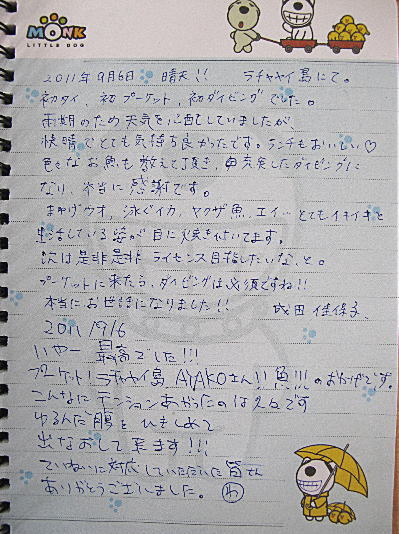 MONK
LITTLE DOG
2011年9月6日 晴天!! ラチャヤイ島にて。
初タイ、初プーケット、初ダイビングでした。
雨期のため天気を心配していましたが、
快晴でとても気持ち良かったです。ランチもおいしい♡
色々なお魚も教えて頂き、充実したダイビングに
なり、本当に感謝です。
まかげウオ、泳ぐイカ、ヤクザ魚、エイ… とてもイキイキと
生活している姿が目に焼き付いてます。
次は是非是非 ライセンス目指したいな、と。
プーケットに来たら、ダイビングは必須ですね!!
本当にお世話になりました!! 成田 佳保子
2011/9/6
いやー 最高でした!!!
プーケット!ラチャヤイ島 AYAKOさん!! 魚!!!のおかげです。
こんなにテンションあがったのは久々です
ゆるんだ腹をひきしめて
出なおして来ます!!!
ていねいに対応していただいた皆さん
ありがとうございました。 わ